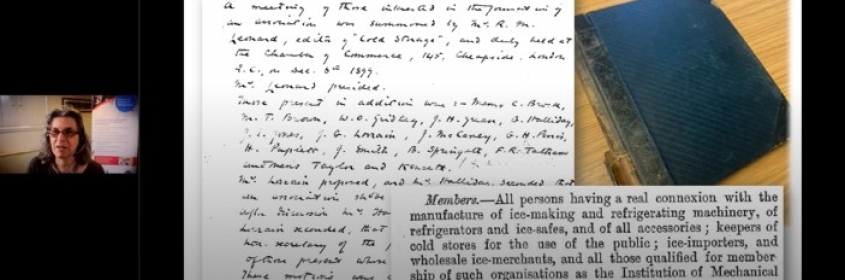 A meeting of those interested in the formation of
an association was summoned by Mr. R. M.
Leonard, editor of "Cold Storage", and duly held at
the Chamber of Commerce, 145, Cheapside, London
E.C., on Dec. 8th 1899.
Mr. Leonard presided.
Those present in addition were :- Messrs
M. T. Brown, W. O. Gridley, J. H. Green, Halliday,
Jones, J. G. Lorrain, J. McCarey, G. H.
H. J. Smith, B. F. R.
Taylor and
Mr. Lorrain proposed, and Mr. Halliday seconded that
an association
after discussion Mr.
Lorrain seconded, that
hon. secretary of the
of those present
These motions were
Members.—All persons having a real connexion with the
manufacture of ice-making and refrigerating machinery, of
refrigerators and ice-safes, and of all accessories ; keepers of
cold stores for the use of the public ; ice-importers, and
wholesale ice-merchants, and all those qualified for member-
ship of such organisations as the Institution of Mechanical